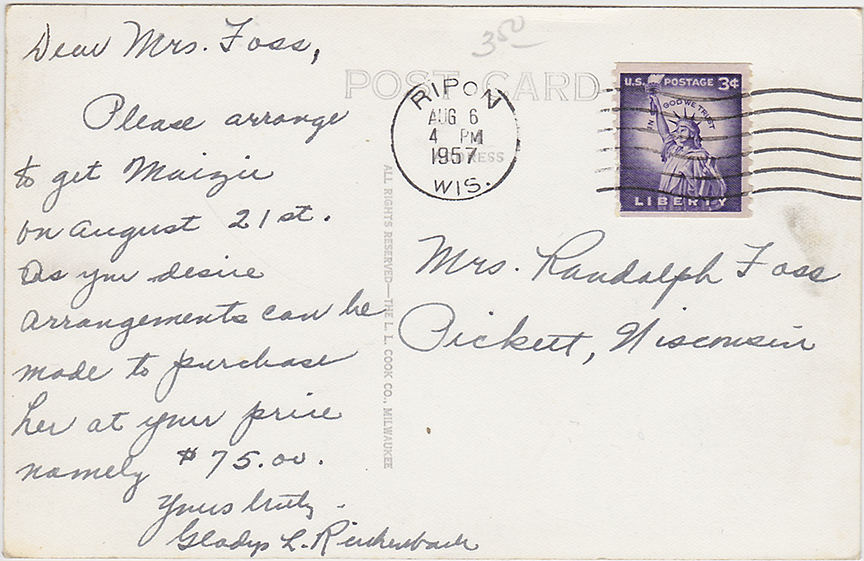 Dear Mrs. Foss,
Please arrange
to get Maizie
on August 21st.
As you desire
arrangements can be
made to purchase
her at your price
namely $75.00.
Yours truly,
Gladys L. Reichenbach
350
POST CARD
ADDRESS
RIPON
AUG 6
4 PM
1957
WIS.
U.S. POSTAGE 3¢
IN GOD WE TRUST
LIBERTY
ALL RIGHTS RESERVED—THE L. L. COOK CO., MILWAUKEE
Mrs. Randolph Foss
Pickett, Wisconsin